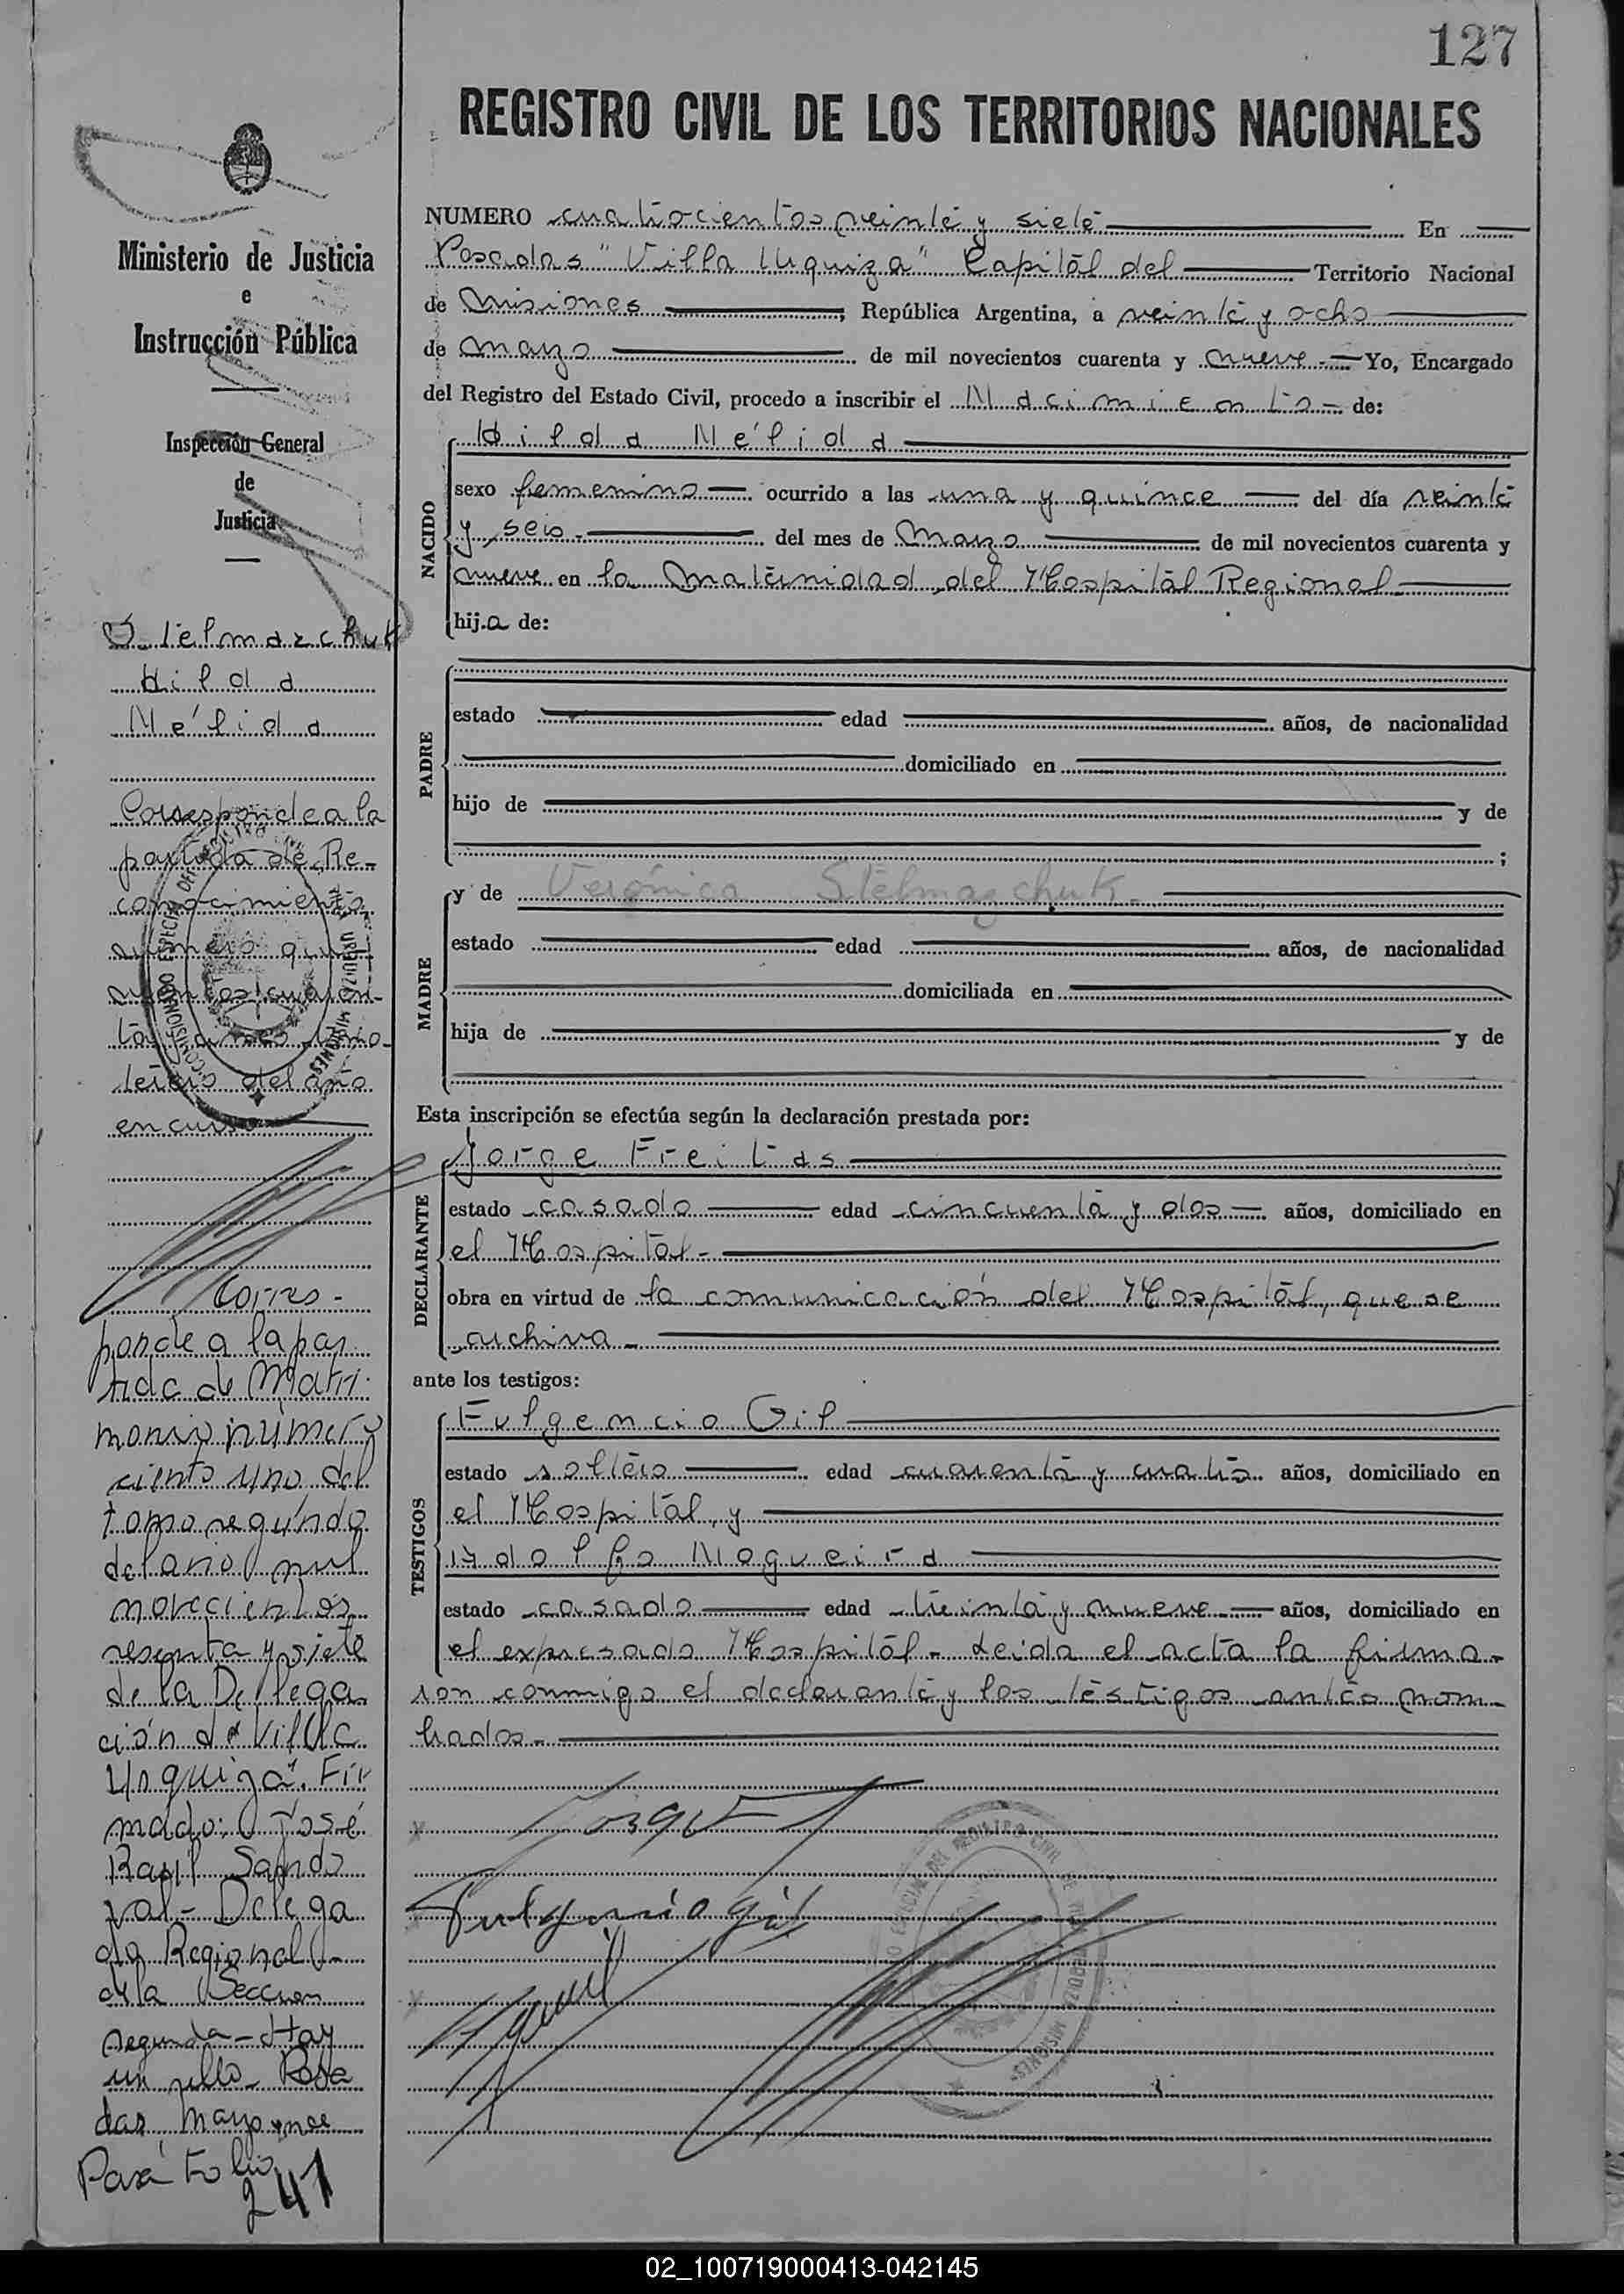 127
REGISTRO CIVIL DE LOS TERRITORIOS NACIONALES
NUMERO cuatrocientos veinte y siete En
Posadas "Villa Urquiza" Capital del Territorio Nacional
de Misiones, República Argentina, a veinte y ocho
de marzo de mil novecientos cuarenta y nueve.- Yo, Encargado
del Registro del Estado Civil, procedo a inscribir el Nacimiento - de:
NACIDO
Hilda Nélida
sexo femenino ocurrido a las una y quince del día veinte
y seis.- del mes de Marzo de mil novecientos cuarenta y
nueve en la Maternidad del Hospital Regional
hij.a de:
PADRE
estado edad años, de nacionalidad
domiciliado en
hijo de y de
;
MADRE
y de Verónica Stelmazchuk.-
estado edad años, de nacionalidad
domiciliada en
hija de y de
Esta inscripción se efectúa según la declaración prestada por:
DECLARANTE
Jorge Freitas
estado casado edad cincuenta y dos años, domiciliado en
el Hospital.-
obra en virtud de la comunicación del Hospital, que se
archiva.-
ante los testigos:
TESTIGOS
Fulgencio Gil
estado soltero edad cuarenta y cuatro años, domiciliado en
el Hospital, y
Adolfo Nogueira
estado casado edad treinta y nueve.- años, domiciliado en
el expresado Hospital.- Leida el acta la firma-
ron conmigo el declarante y los testigos antes nom-
brados.-
Jorge
Fulgencio Gil
Ministerio de Justicia
e
Instrucción Pública
Inspección General
de
Justicia
Stelmazchuk
Hilda
Nélida
Corresponde a la
partida de Re-
conocimiento
número qui-
nientos cuaren-
ta y
del año
en curso
Corres-
ponde a la par-
tida de Matri-
monio número
ciento uno del
tomo segundo
del año mil
novecientos
sesenta y siete
de la Delega-
ción de "Villa
Urquiza". Fir-
mado: José
Raúl Sando-
val - Delega-
do Regional
de la Sección
segunda - Hay
un sello - Posa-
das, Mayo once
Pasa Folio
241
02_100719000413-042145